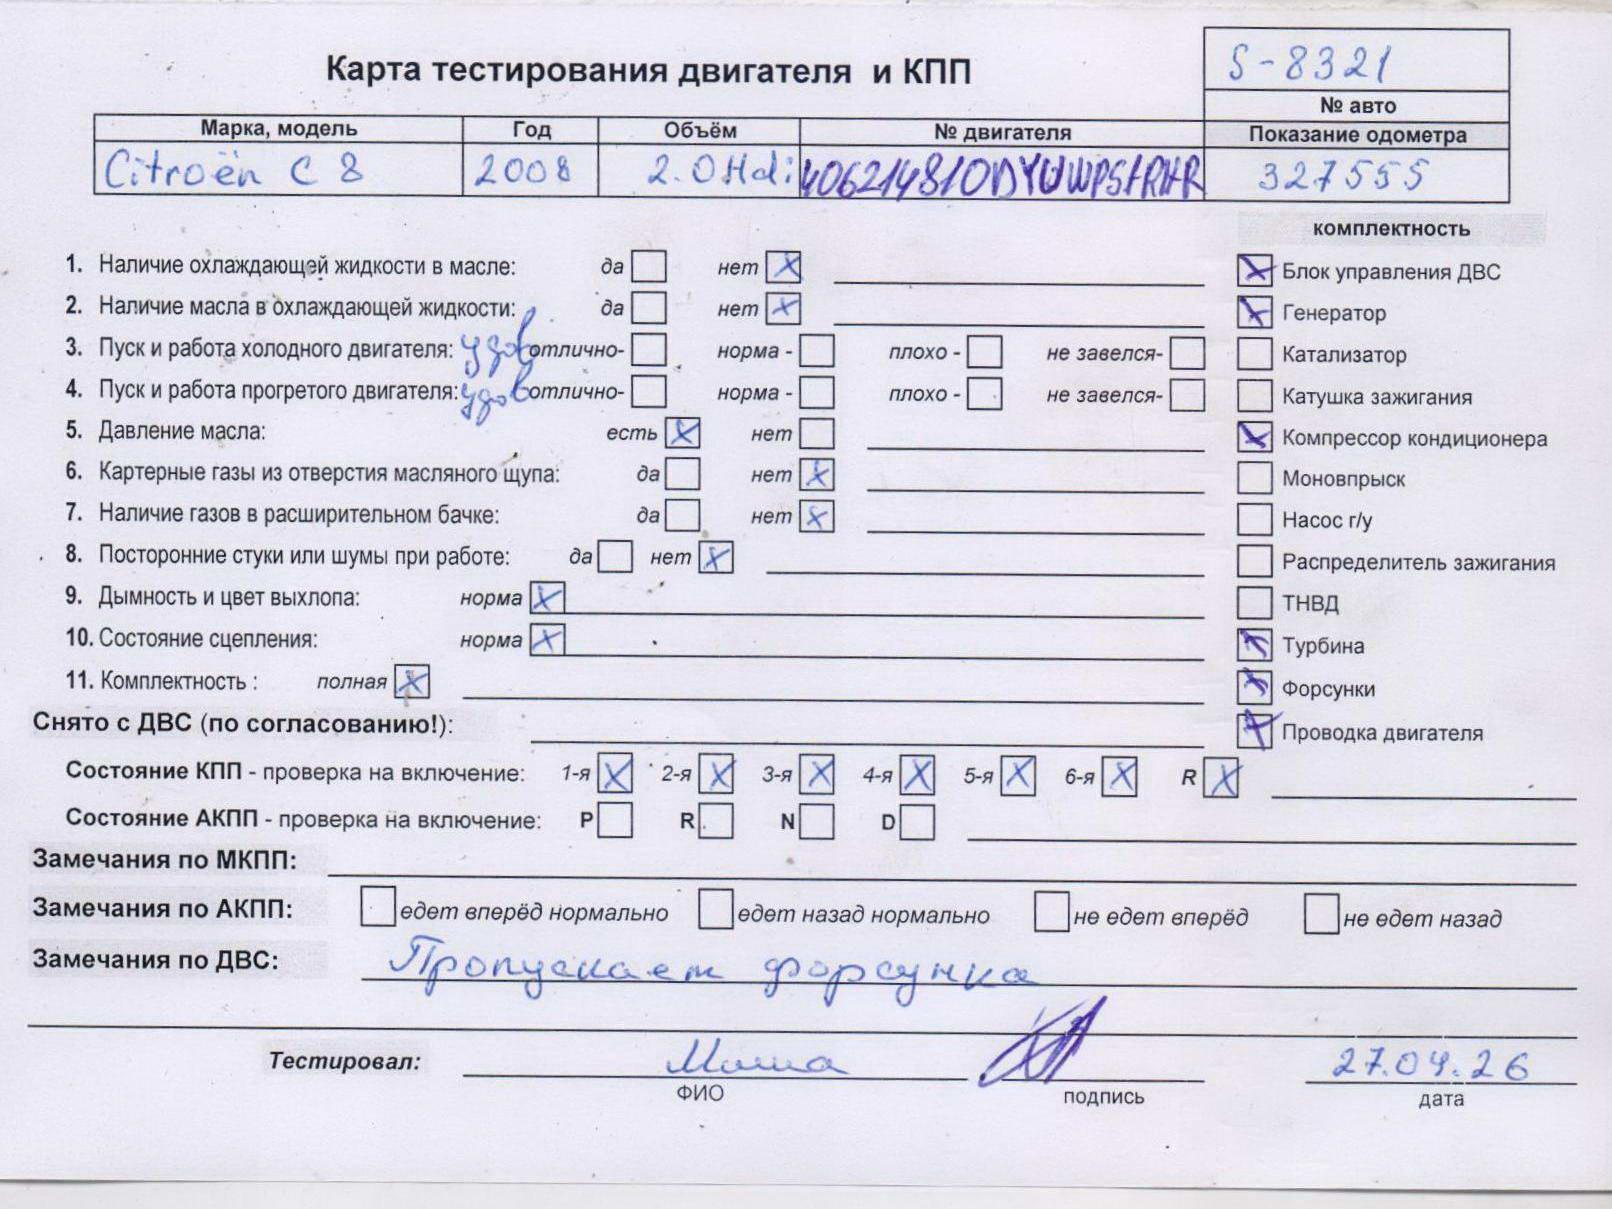 S-8321
Карта тестирования двигателя и КПП
№ авто
Марка, модель Год Объём № двигателя Показание одометра
Citroën C 8 2008 2.0Hdi 327555
комплектность
1. Наличие охлаждающей жидкости в масле: да нет
2. Наличие масла в охлаждающей жидкости: да нет
3. Пуск и работа холодного двигателя: удов отлично- норма - плохо - не завелся-
4. Пуск и работа прогретого двигателя: удов отлично- норма - плохо - не завелся-
5. Давление масла: есть нет
6. Картерные газы из отверстия масляного щупа: да нет
7. Наличие газов в расширительном бачке: да нет
8. Посторонние стуки или шумы при работе: да нет
9. Дымность и цвет выхлопа: норма
10. Состояние сцепления: норма
11. Комплектность : полная
Блок управления ДВС
Генератор
Катализатор
Катушка зажигания
Компрессор кондиционера
Моновпрыск
Насос г/у
Распределитель зажигания
ТНВД
Турбина
Форсунки
Проводка двигателя
Снято с ДВС (по согласованию!):
Состояние КПП - проверка на включение: 1-я 2-я 3-я 4-я 5-я 6-я R
Состояние АКПП - проверка на включение: P R N D
Замечания по МКПП:
Замечания по АКПП: едет вперёд нормально едет назад нормально не едет вперёд не едет назад
Замечания по ДВС: Пропускает форсунка
Тестировал: Миша 27.04.26
ФИО подпись дата